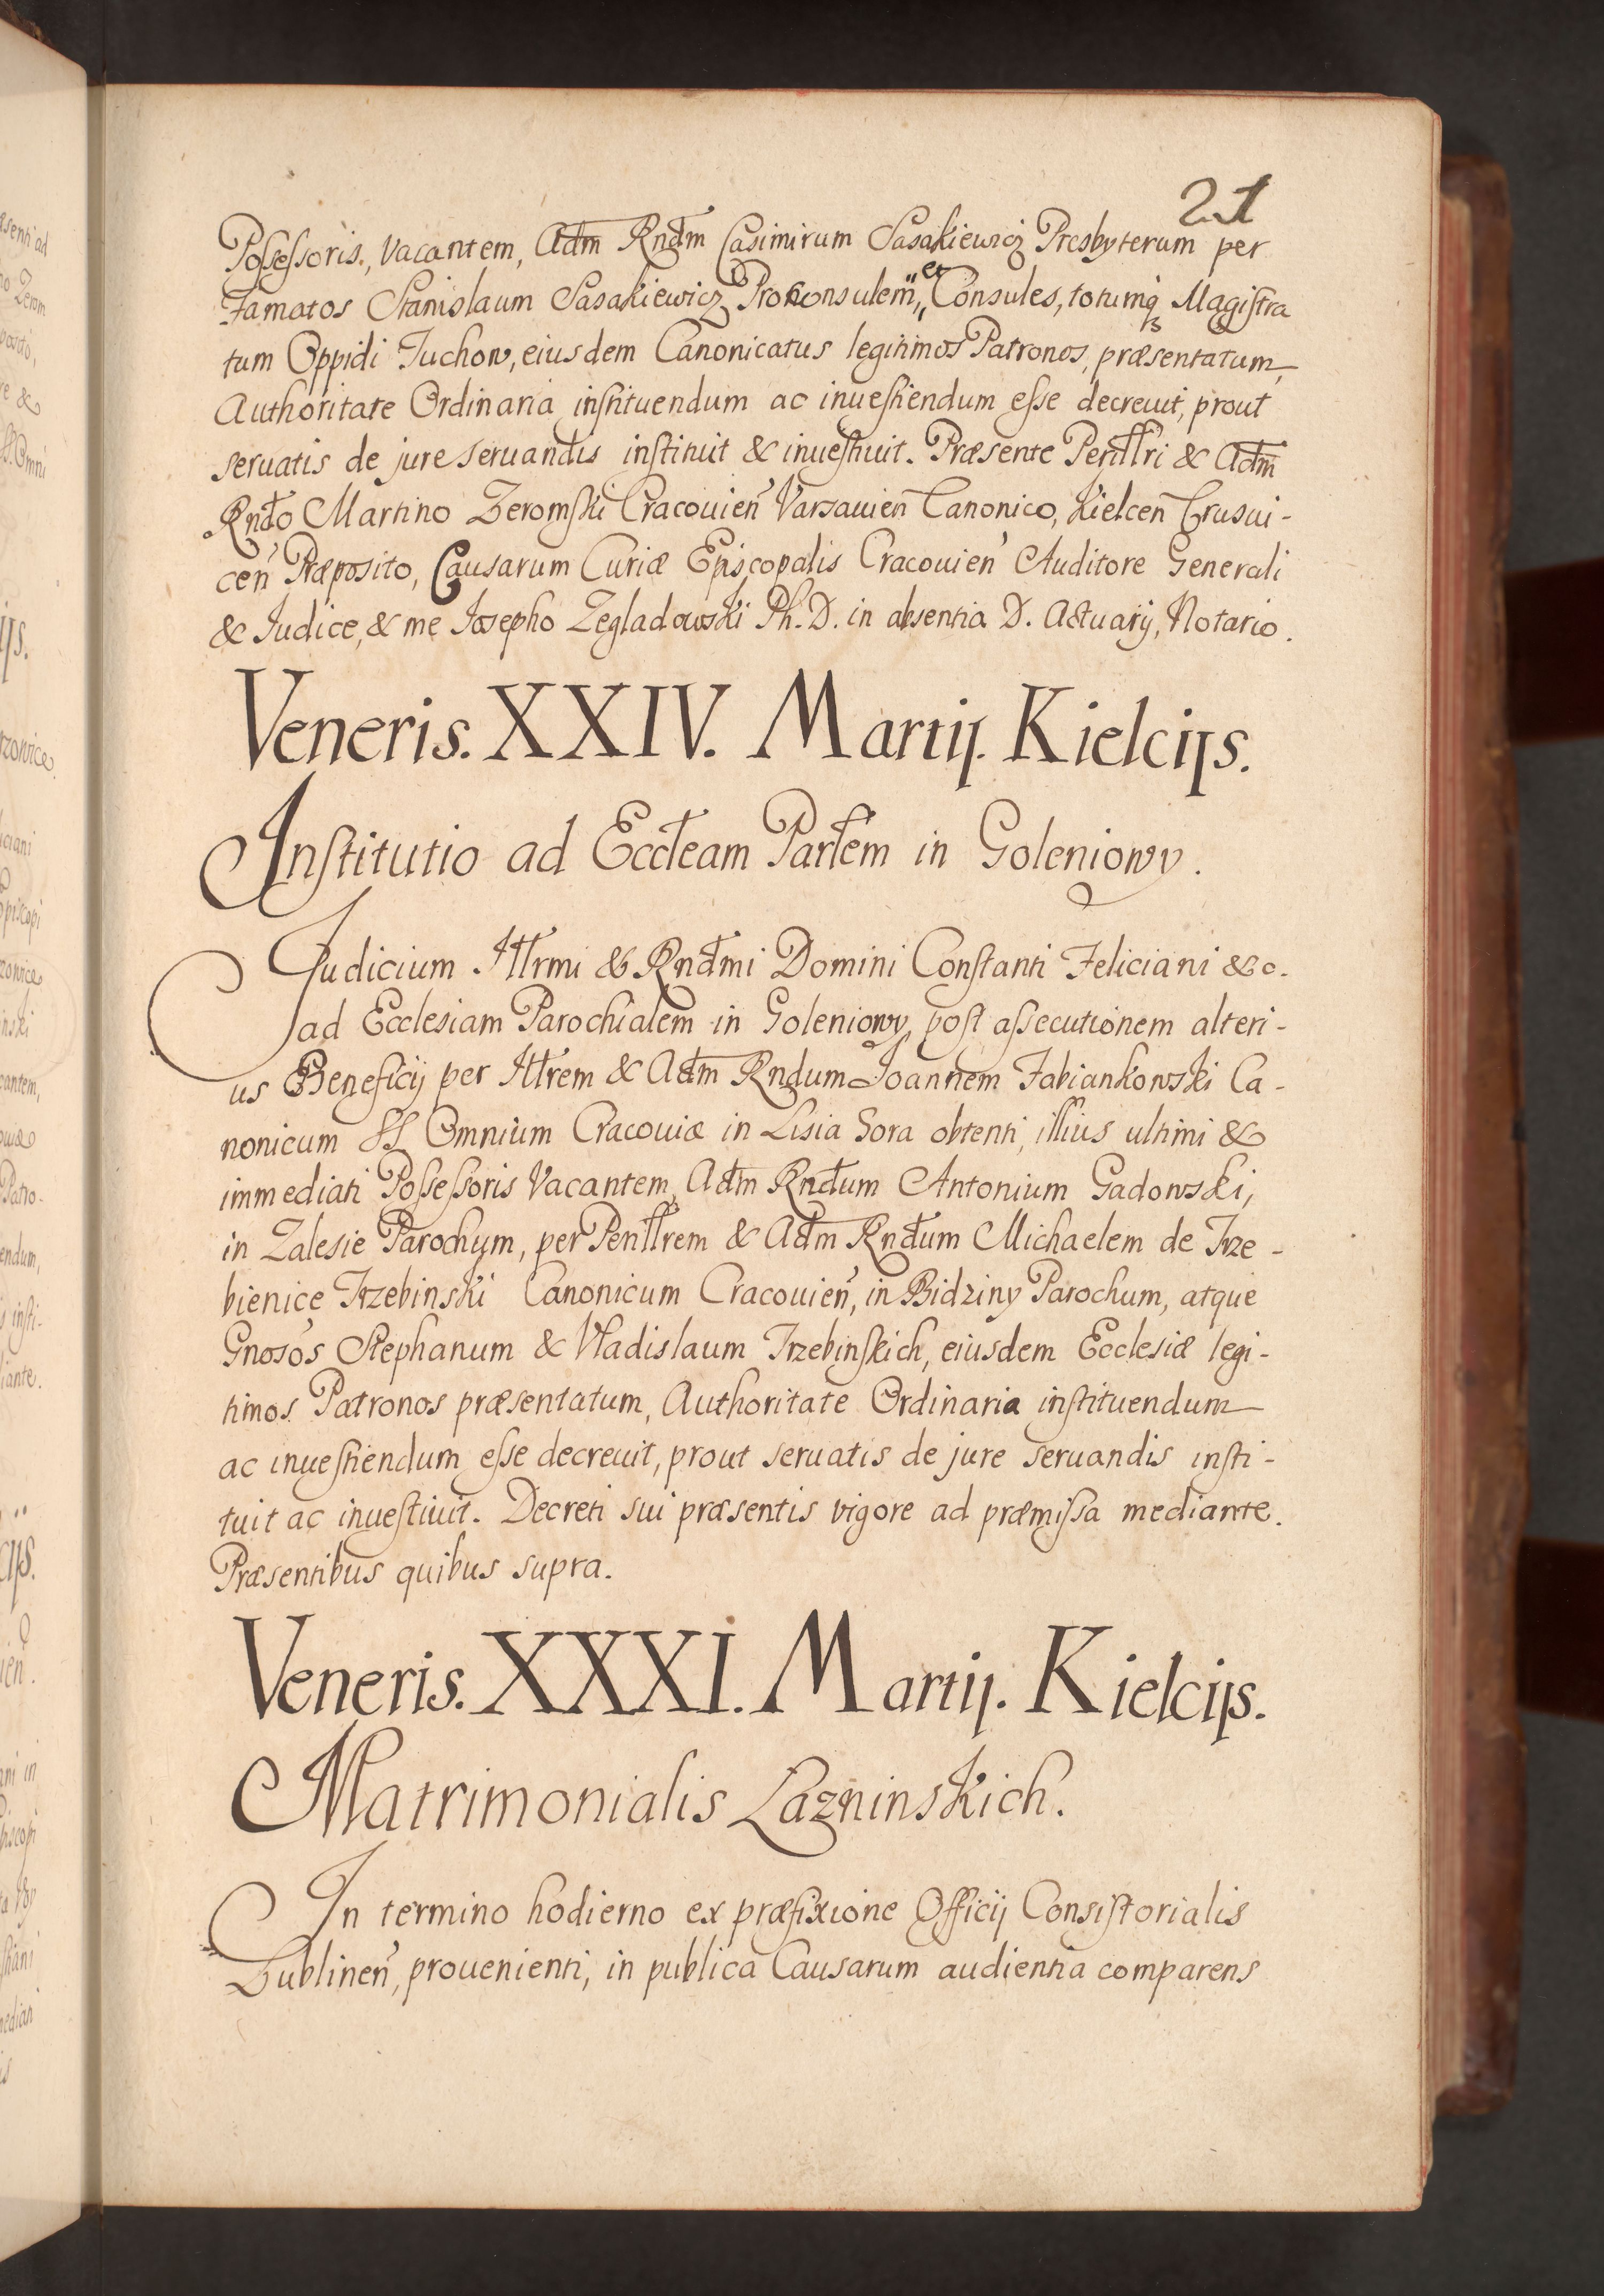 21
Possessoris, vacantem, Adm Rndm Casimirum Sasakiewicz Presbyterum per
Famatos Stanislaum Sasakiewicz Prokonsulem, et Consules, totumq3 Magistra
tum Oppidi Tuchow, eiusdem Canonicatus legitimos Patronos, præsentatum,
Authoritate Ordinaria instituendum ac inuestiendum esse decreuit, prout
seruatis de jure seruandis instituit & inuestiuit. Præsente Penllri & Adm
Rndo Martino Zeromski Cracouien Varsauien Canonico, Kielcen Crusui-
cen Præposito, Causarum Curiæ Episcopalis Cracouien Auditore Generali
& Iudice, & me Iosepho Zegladowski Ph. D. in absentia D. Actuarij, Notario.
Veneris. XXIV. Martij. Kielcijs.
Institutio ad Eccleam Parlem in Goleniowy.
Judicium Illrmi & Rndmi Domini Constanti Feliciani &c.
ad Ecclesiam Parochialem in Goleniowy, post assecutionem alteri-
us Beneficij per Illrem & Adm Rndum Joannem Fabiankowski Ca-
nonicum SS Omnium Cracouiæ in Lisia Gora obtenti, illius ultimi &
immediati Possessoris Vacantem, Adm Rndum Antonium Gadowski,
in Zalesie Parochum, per Penllrem & Adm Rndum Michaelem de Trze-
bienice Trzebinski Canonicum Cracouien, in Bidziny Parochum, atque
Gnosos Stephanum & Vladislaum Trzebinskich, eiusdem Ecclesiæ legi-
timos Patronos præsentatum, Authoritate Ordinaria instituendum
ac inuestiendum esse decreuit, prout seruatis de jure seruandis insti-
tuit ac inuestiuit. Decreti sui præsentis vigore ad præmissa mediante.
Præsentibus quibus supra.
Veneris. XXXI. Martij. Kielcijs.
Matrimonialis Lazninskich.
In termino hodierno ex præfixione Officij Consistorialis
Lublinen, prouenienti, in publica Causarum audientia comparens